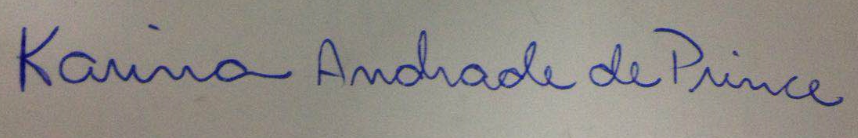 Karina Andrade de Prince